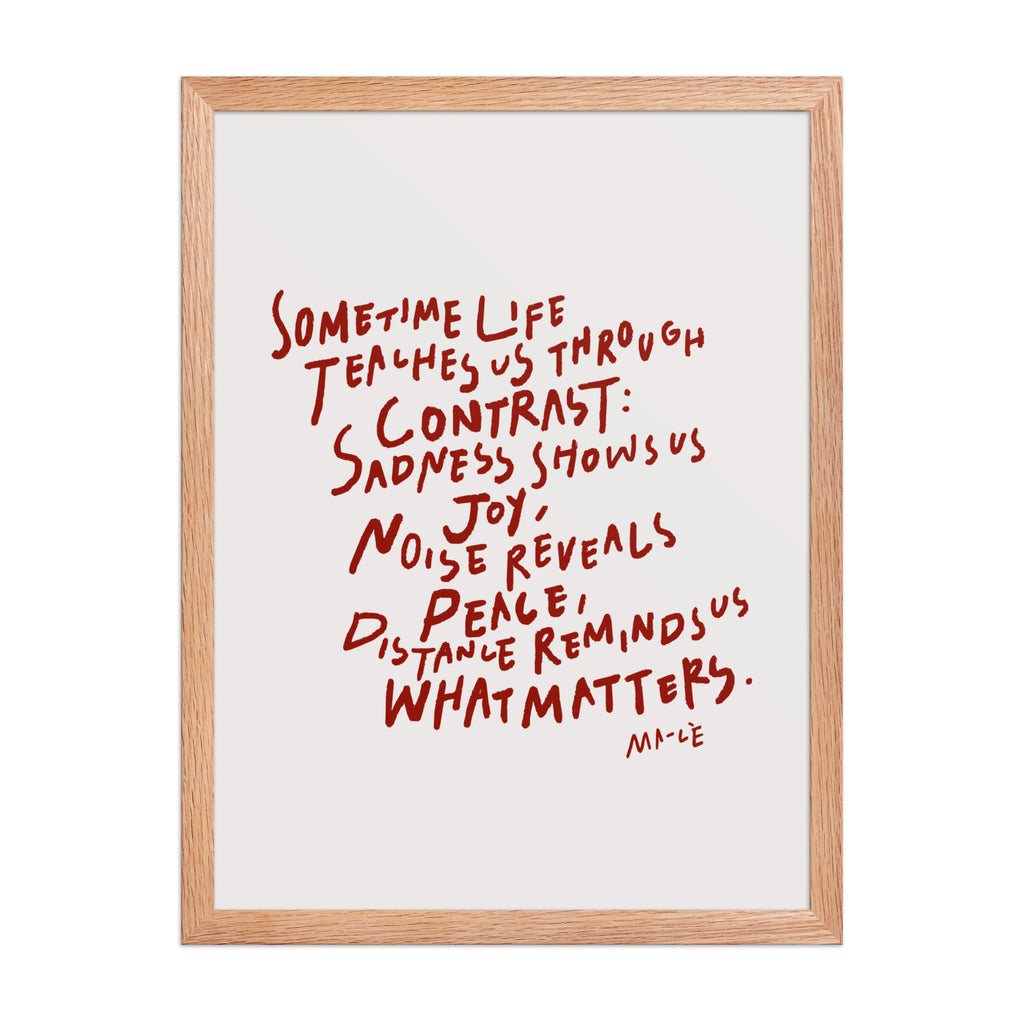 SOMETIME LIFE
TEACHES US THROUGH
CONTRAST:
SADNESS SHOWS US
JOY,
NOISE REVEALS
PEACE,
DISTANCE REMINDS US
WHAT MATTERS.
MA-LÈ